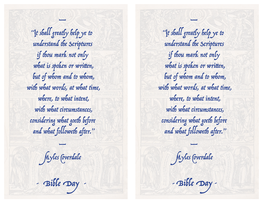 "It shall greatly help ye to
understand the Scriptures
if thou mark not only
what is spoken or written,
but of whom and to whom,
with what words, at what time,
where, to what intent,
with what circumstances,
considering what goeth before
and what followeth after."
Myles Coverdale
- Bible Day -
"It shall greatly help ye to
understand the Scriptures
if thou mark not only
what is spoken or written,
but of whom and to whom,
with what words, at what time,
where, to what intent,
with what circumstances,
considering what goeth before
and what followeth after."
Myles Coverdale
- Bible Day -